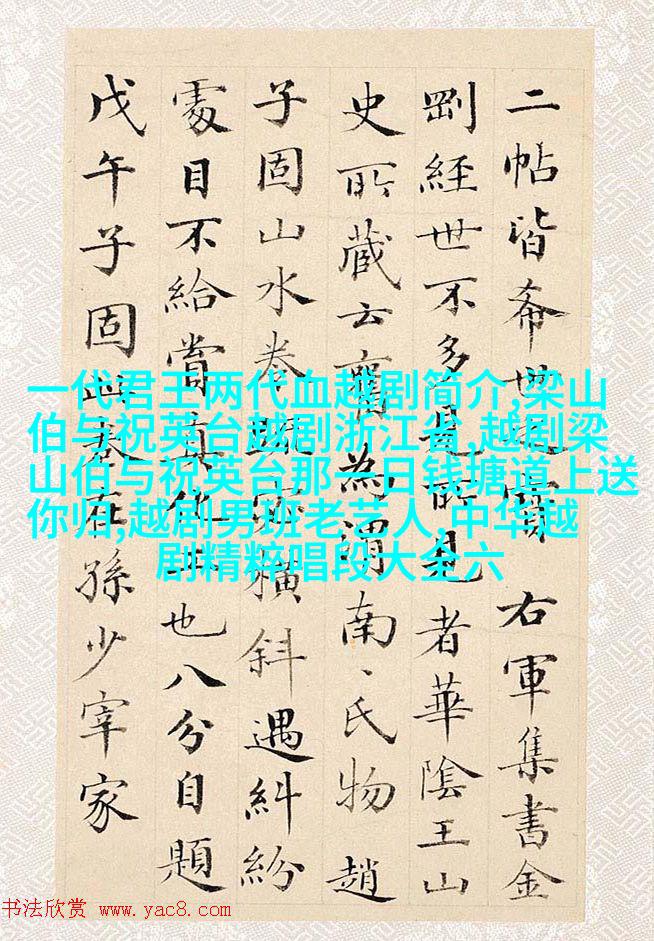 二帖皆希世寶 右軍集書金
剛經世不多見所見者華陰王山
史所藏云為渭南、氏物趙
子固山水卷橫斜遇糾紛
處目不給賞真化工也八分自題
戊午子固此卷在孫少宰家
一代君王两代血越剧简介,梁山
伯与祝英台越剧浙江省,越剧梁
山伯与祝英台那一日钱塘道上送
你归,越剧男班老艺人,中华越
剧精粹唱段大全六
书法欣赏 www.yac8.com